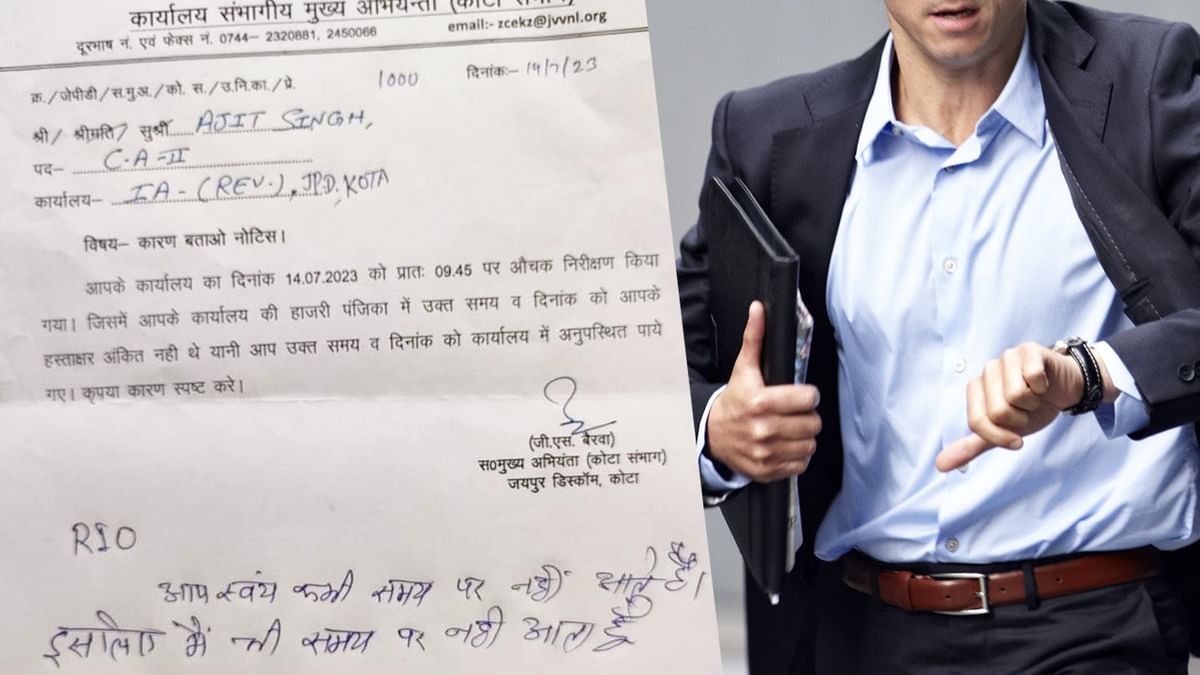 कार्यालय संभागीय मुख्य अभियन्ता (कोटा संभाग)
दूरभाष नं. एवं फेक्स नं. 0744– 2320881, 2450066
email:- zcekz@jvvnl.org
क्र./जेपीडी/स.मु.अ./को. स./उ.नि.का./प्रे. 1000 दिनांक:– 19/7/23
श्री/ श्रीमति/ सुश्री AJIT SINGH,
पद– C.A-II
कार्यालय– IA-(REV.), JPD, KOTA
विषय– कारण बताओ नोटिस।
आपके कार्यालय का दिनांक 14.07.2023 को प्रातः 09.45 पर औचक निरीक्षण किया
गया। जिसमें आपके कार्यालय की हाजरी पंजिका में उक्त समय व दिनांक को आपके
हस्ताक्षर अंकित नही थे यानी आप उक्त समय व दिनांक को कार्यालय में अनुपस्थित पाये
गए। कृपया कारण स्पष्ट करे।
(जी.एस. बैरवा)
स०मुख्य अभियंता (कोटा संभाग)
जयपुर डिस्कॉम, कोटा
RIO
आप स्वंय कभी समय पर नहीं आते हैं।
इसलिए मैं भी समय पर नही आता हूँ